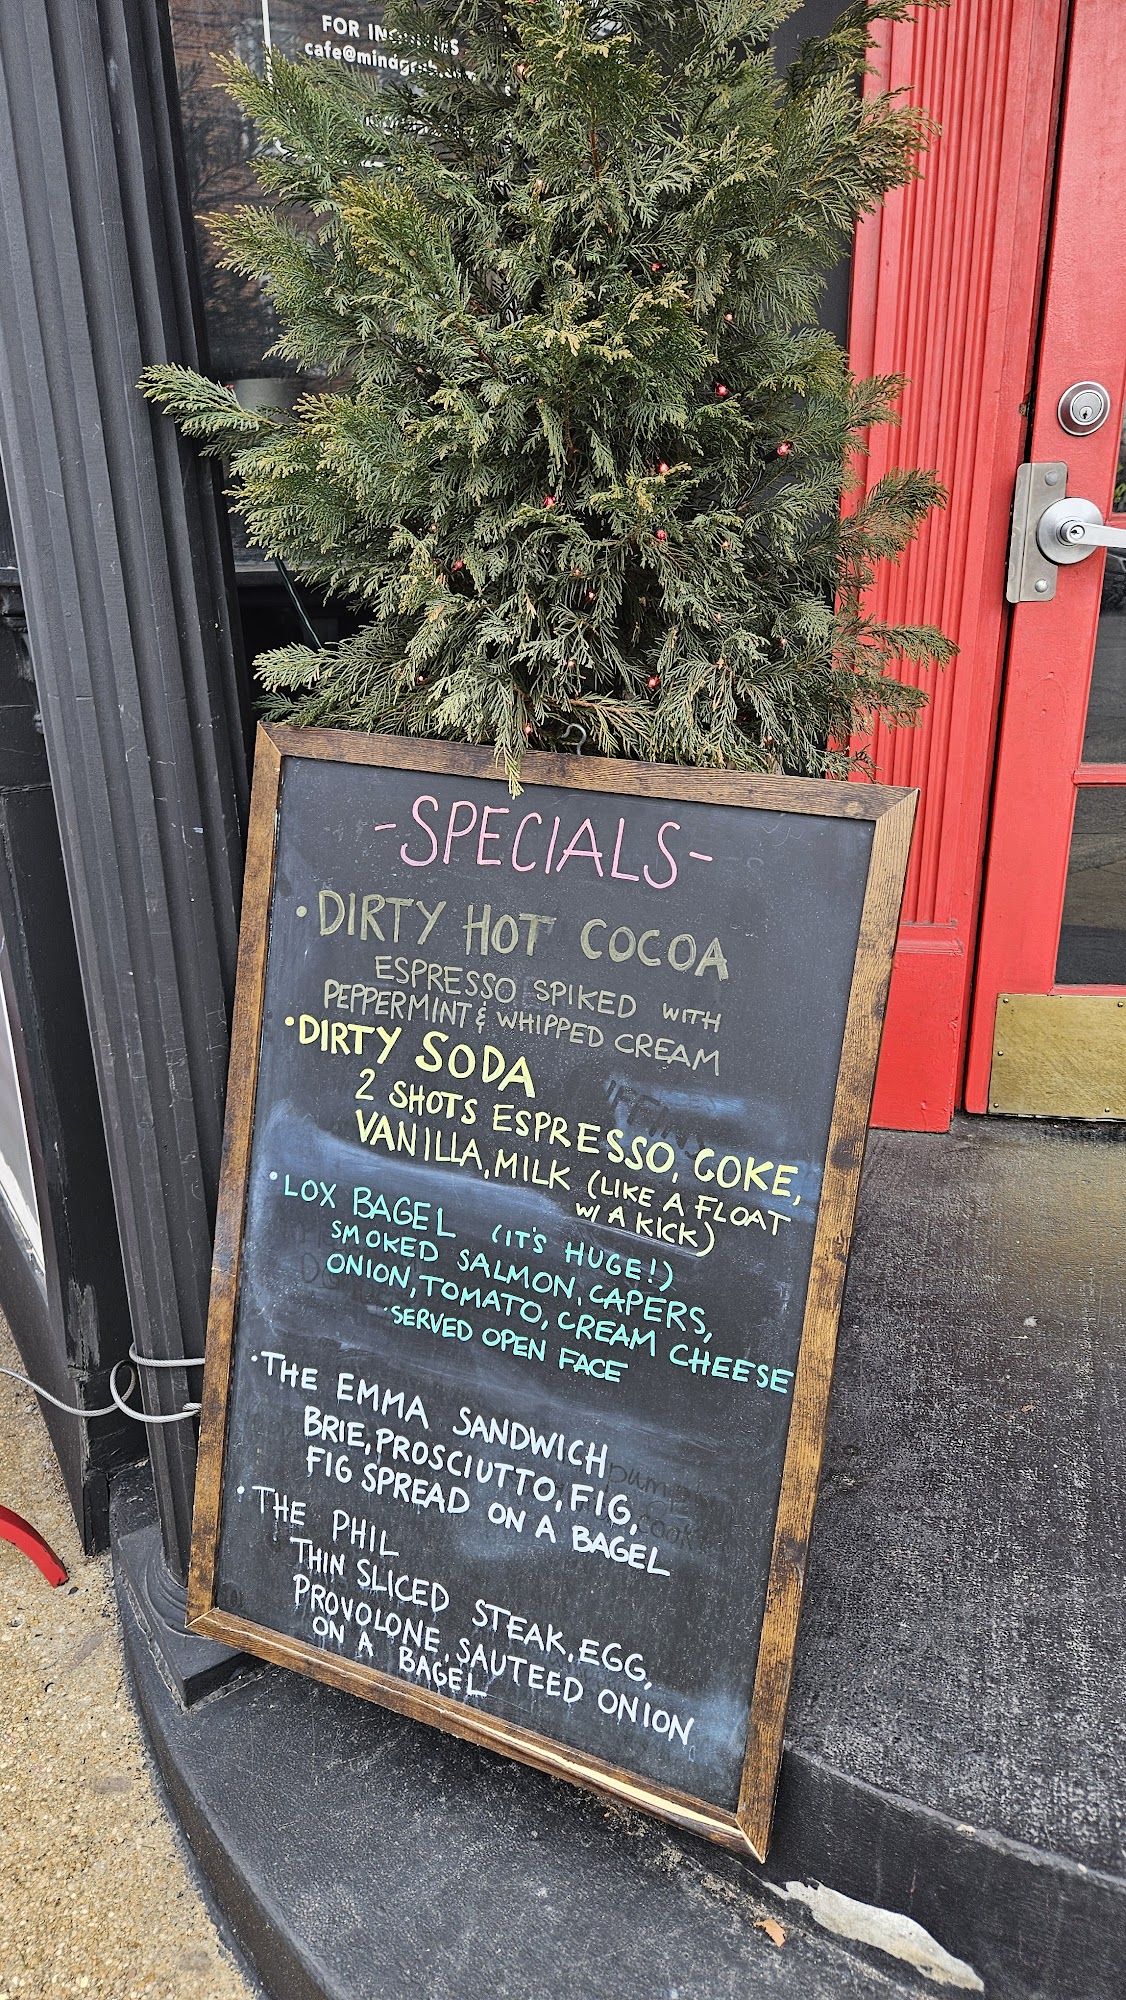 FOR INQUIRIES
-SPECIALS-
• DIRTY HOT COCOA
ESPRESSO SPIKED WITH
PEPPERMINT & WHIPPED CREAM
• DIRTY SODA
2 SHOTS ESPRESSO, COKE,
VANILLA, MILK (LIKE A FLOAT
W/ A KICK)
• LOX BAGEL (IT'S HUGE!)
SMOKED SALMON, CAPERS,
ONION, TOMATO, CREAM CHEESE
• SERVED OPEN FACE
• THE EMMA SANDWICH
BRIE, PROSCIUTTO, FIG,
FIG SPREAD ON A BAGEL
• THE PHIL
THIN SLICED STEAK, EGG,
PROVOLONE, SAUTEED ONION
ON A BAGEL